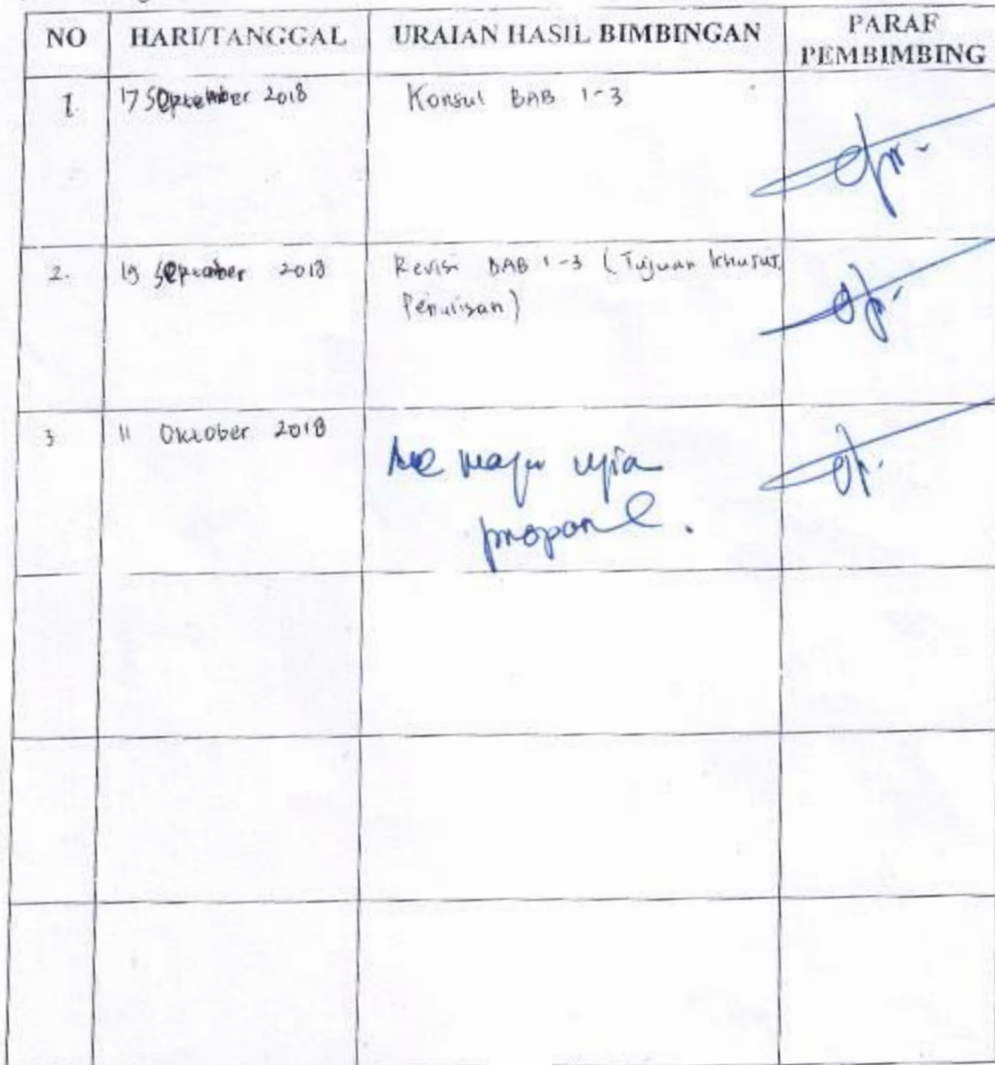 NO HARI/TANGGAL URAIAN HASIL BIMBINGAN PARAF PEMBIMBING
1. 17 September 2018 Konsul BAB 1-3
2. 19 September 2018 Revisi BAB 1-3 (Tujuan khusus,
Penulisan)
3. 11 Oktober 2018
maju ujia
proposal.